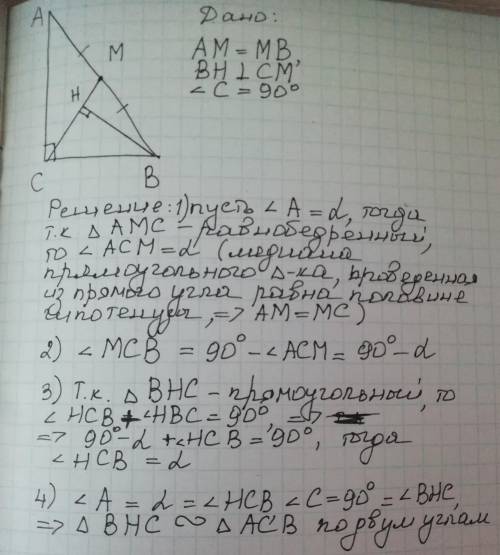 Дано:
A
AM = MB,
M
BH ⊥ CM,
H
∠C = 90°
C
B
Решение: 1) пусть ∠A = α, тогда
т.к △ AMC - равнобедренный,
то ∠ACM = α (медиана
прямоугольного △-ка, проведенная
из прямого угла равна половине
гипотенузы, => AM = MC)
2) ∠MCB = 90° - ∠ACM = 90° - α
3) Т.к. △ BHC - прямоугольный, то
∠HCB + ∠HBC = 90°, =>
=> 90° - α + ∠HCB = 90°, тогда
∠HCB = α
4) ∠A = α = ∠HCB ∠C = 90° = ∠BHC,
=> △ BHC ∾ △ ACB по двум углам